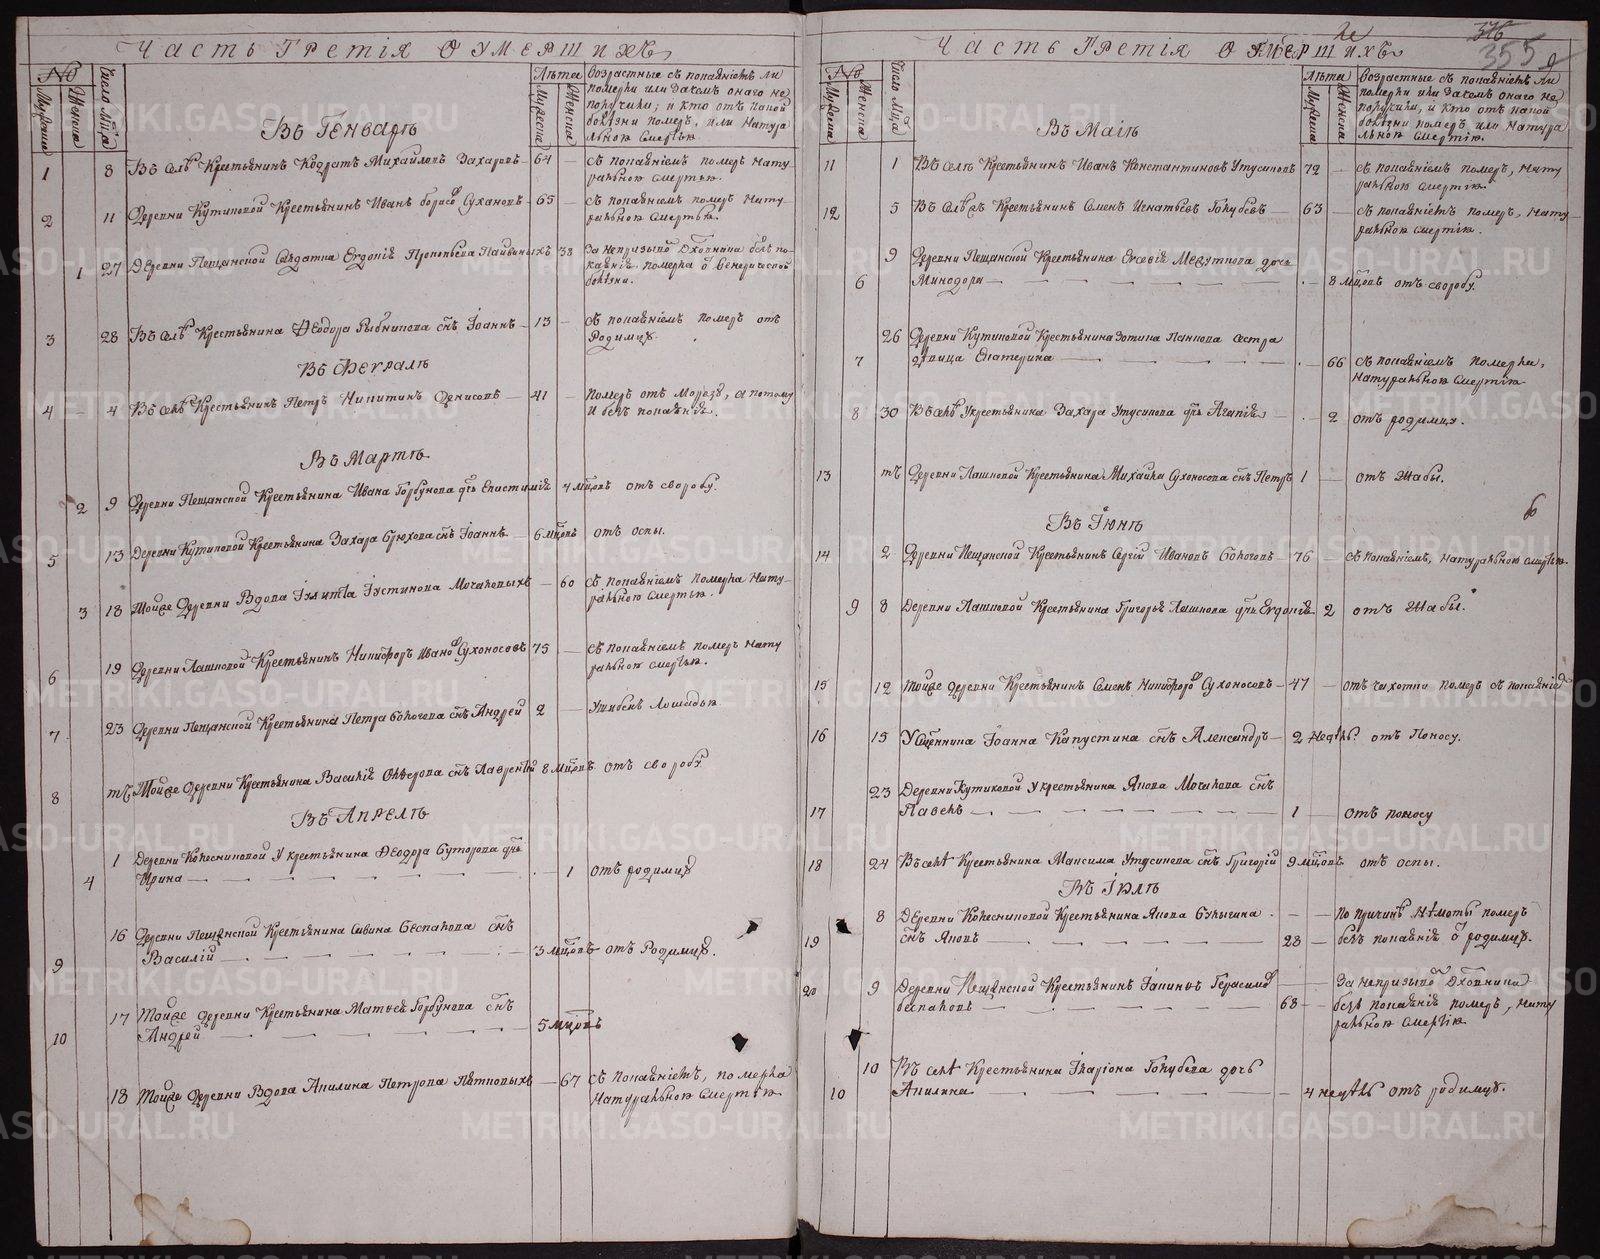 Часть Третія О умершихъ
№
Мужеска
Женска
Число М͠ца
Лѣта
Мужеска
Женска
Возрастные съ покаяніемъ ли
померли или зачемъ онаго не
получили; и кто отъ какой
болѣзни померъ, или Натура
льною смертью
Въ Генварѣ
1 8 Въ селѣ Крестьянинъ Кодратъ Михайловъ Захаровъ 64 съ покаяніемъ померъ нату-
ральною смертью.
2 11 Деревни Кутиковой Крестьянинъ Иванъ Борисовъ Сухановъ 65 съ покаяніемъ померъ нату-
ральною смертью.
1 27 Деревни Пещанской солдатка Евдокія Прокопьева 38 За непризывомъ Духовника безъ по-
каянія померла
болѣзни.
3 28 Въ селѣ Крестьянина Ѳеодора Рыбникова сн͠ъ Іоаннъ 13 съ покаяніемъ померъ отъ
Родимца.
Въ Февралѣ
4 4 Въ селѣ Крестьянинъ Петръ Никитинъ Денисовъ 41 померъ отъ Морозу, а потому
и безъ покаянія.
Въ Мартѣ
2 9 Деревни Пещанской Крестьянина Ивана Горбунова дч͠ь Епистимія 4 мц͠овъ отъ своробу.
5 13 Деревни Кутиковой Крестьянина Захара Брюхова сн͠ъ Іоаннъ 6 мц͠овъ отъ оспы.
3 18 Тойже Деревни Вдова Іулитта Іустинова 60 съ покаяніемъ померла нату-
ральною смертью.
6 19 Деревни Лашковой Крестьянинъ Никифоръ Ивановъ Сухоносовъ 75 съ покаяніемъ померъ нату
ральною смертью.
7 23 Деревни Пещанской Крестьянина Петра Боготова сн͠ъ Андрей 2 Ушибенъ Лошадью
8 тч Тойже Деревни Крестьянина Василія сн͠ъ Лаврентій 8 мц͠овъ отъ своробу
Въ Апрелѣ
1 Деревни Колесниковой у крестьянина Ѳеодора Суторова дч͠ь
4 Ирина 1 отъ родимца
16 Деревни Пещанской Крестьянина Савина Беспалова сн͠ъ
9 Василій 3 мц͠овъ отъ Родимца.
17 Тойже деревни Крестьянина Матвея Горбунова сн͠ъ
10 Андрей 5 мц͠овъ
18 Тойже Деревни Вдова Акилина Петрова 67 съ покаяніемъ, померла
Натуральною Смертію
Часть Третія О умершихъ
355
№
Мужеска
Женска
Число М͠ца
Лѣта
Мужеска
Женска
Возрастные съ покаяніемъ ли
померли или зачемъ онаго не
получили, и кто отъ какой
болѣзни померъ или Натура
льною Смертію.
Въ Маіѣ
11 1 Въ селѣ Крестьянинъ Иванъ Константиновъ Утусиковъ 72 съ покаяніемъ померъ, нату
ральною смертію.
12 5 Въ селѣ Крестьянинъ Семенъ Игнатьевъ Голубевъ 63 съ покаяніемъ померъ, нату-
ральною смертію.
9 Деревни Пещанской Крестьянина Евсевія дочь
6 Минодора 8 мц͠овъ отъ своробу.
26 Деревни Кутиковой Крестьянина Зотика Панкова сестра
7 дѣвица Екатерина 66 съ покаяніемъ померла,
Натуральною Смертію
8 30 Въ селѣ у крестьянина Захара Утусикова дч͠ь Агапія 2 отъ родимца.
13 тч Деревни Лашковой Крестьянина Михайла Сухоносова сн͠ъ Петръ 1 отъ Жабы.
Въ Іюнѣ
14 2 Деревни Пещанской Крестьянинъ Сергій Ивановъ Боготовъ 76 съ покаяніемъ, натуральною смертью.
9 8 Деревни Лашковой Крестьянина Григорья Лашкова дч͠ь Евдокія 2 отъ Жабы.
15 12 Тойже деревни Крестьянинъ Семенъ Никифоровъ Сухоносовъ 47 отъ чахотки померъ съ покаяніемъ
16 15 У Сщ͠енника Іоанна Капустина сн͠ъ Александръ 2 недѣль отъ Поносу.
23 Деревни Кутиковой у крестьянина Якова Мочалова сн͠ъ
17 Павелъ 1 отъ поносу
18 24 Въ селѣ Крестьянина Максима Утусикова сн͠ъ Григорій 9 мц͠овъ отъ оспы.
Въ Іюлѣ
8 Деревни Колесниковой Крестьянина Якова Булыгина По причинѣ Нѣмоты померъ
19 сн͠ъ Яковъ 28 безъ покаянія ѿ родимца.
20 9 Деревни Пещанской Крестьянинъ Іакинѳъ Герасимовъ За непризывомъ Духовника
Беспаловъ 68 безъ покаянія померъ, нату
ральною смертію
10 Въ селѣ Крестьянина Іларіона Голубева дочь
10 Акилина 4 недѣль отъ родимца.